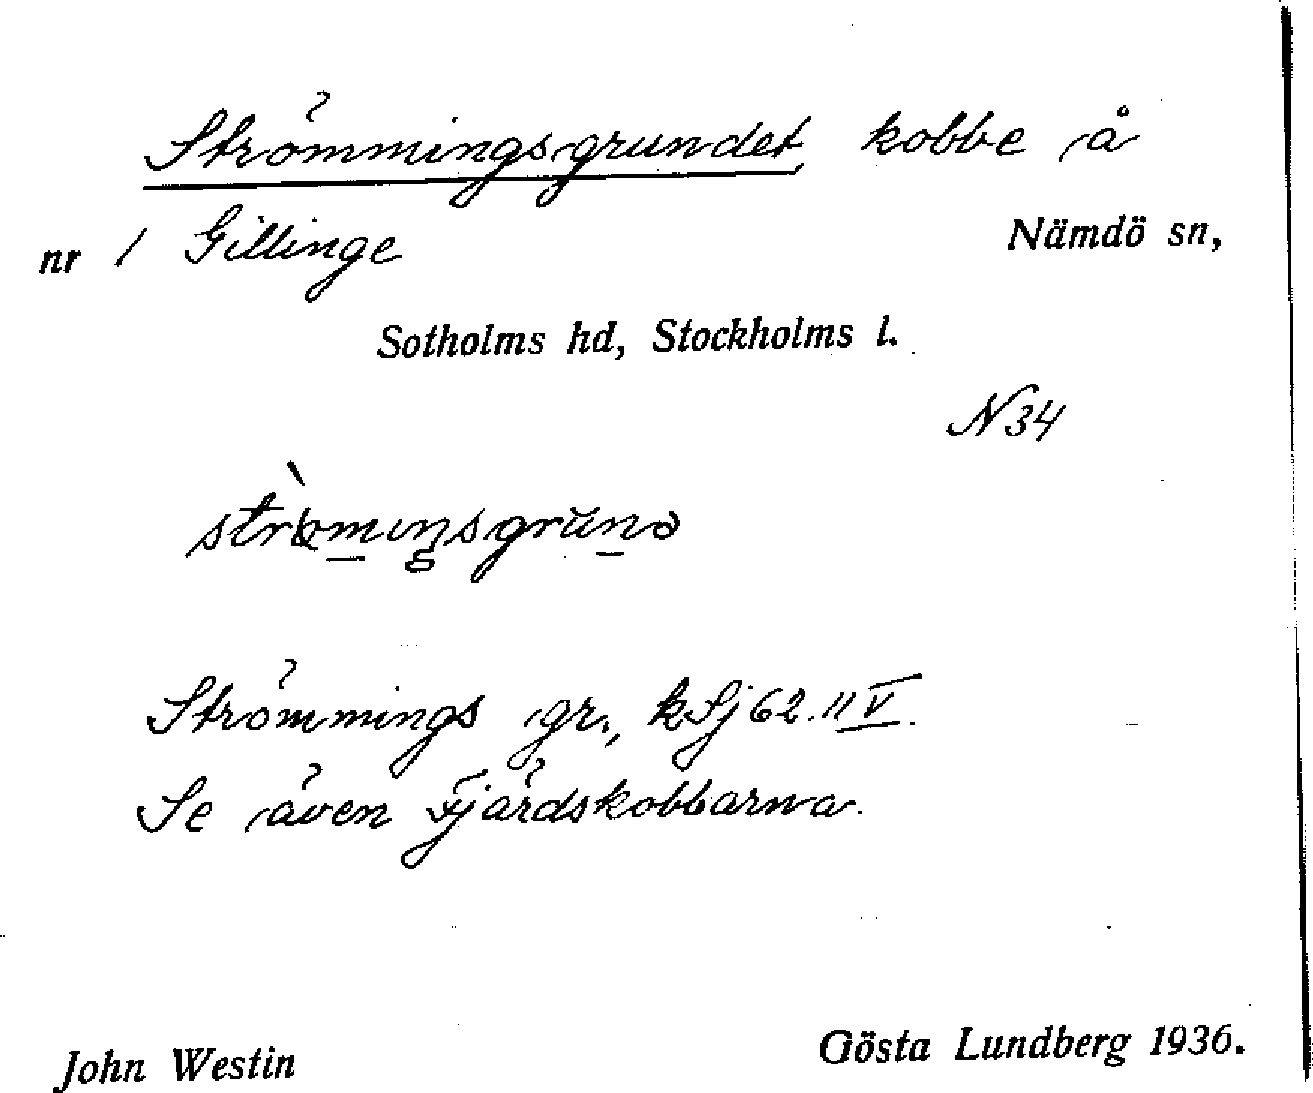 Strömmingsgrundet, kobbe å
nr 1 Gillinge Nämdö sn,
Sotholms hd, Stockholms l.
N34
Strömmings gr., kSj 62.II V.
Se även Fjärdskobbarna.
John Westin Gösta Lundberg 1936.